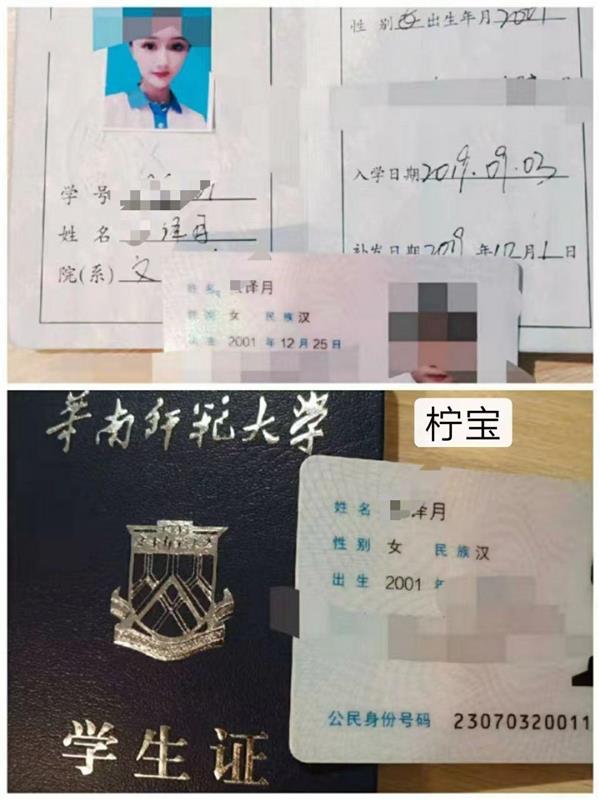 性 别 女 出生年月 2001
学 号
入学日期 2019.09.03
姓 名 泽月
院(系) 文
补发日期 2019 年 12 月 1 日
姓 名 泽月
性 别 女 民 族 汉
出 生 2001 年 12 月 25 日
华南师范大学
柠宝
姓 名 泽月
性 别 女 民 族 汉
出 生 2001 年
公民身份号码 23070320011
学生证